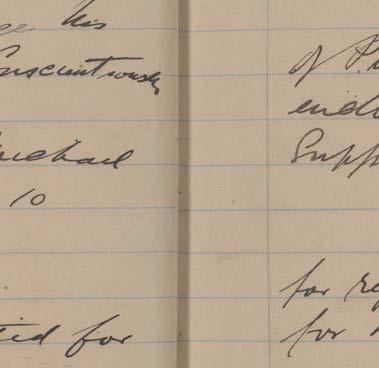 his
conscientiously
michael
10
ted for
of
endo
Supp
for re
for